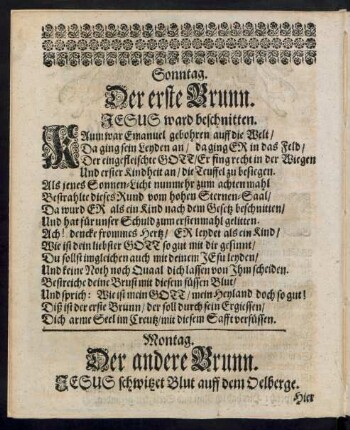 Sonntag.
Der erste Brunn.
JESUS ward beschnitten.
KAum war Emanuel gebohren auff die Welt/
Da ging sein Leyden an/ da ging ER in das Feld/
Der eingefleischte GOTT/ Er fing recht in der Wiegen
Und erster Kindheit an/ die Teuffel zu besiegen.
Als jenes Sonnen-Licht nunmehr zum achtenmahl
Bestrahlte dieses Rund vom hohen Sternen-Saal/
Da wurd ER als ein Kind nach dem Gesetz beschnitten/
Und hat für unser Schuld zum erstenmahl gelitten.
Ach! dencke frommes Hertz/ ER leyder als ein Kind/
Wie ist dein liebster GOTT so gut mit dir gesinnt/
Du sollst imgleichen auch mit deinem JEsu leyden/
Und keine Noth noch Quaal dich lassen von Ihm scheiden.
Bestreiche deine Brust mit diesem süssen Blut/
Und sprich: Wie ist mein GOTT/ mein Heyland doch so gut!
Diß ist der erste Brunn/ der soll durch sein Ergiessen/
Dich arme Seel im Creutz/ mit diesem Safft versüssen.
Montag.
Der andere Brunn.
JESUS schwitzet Blut auff dem Oelberge.
Hier